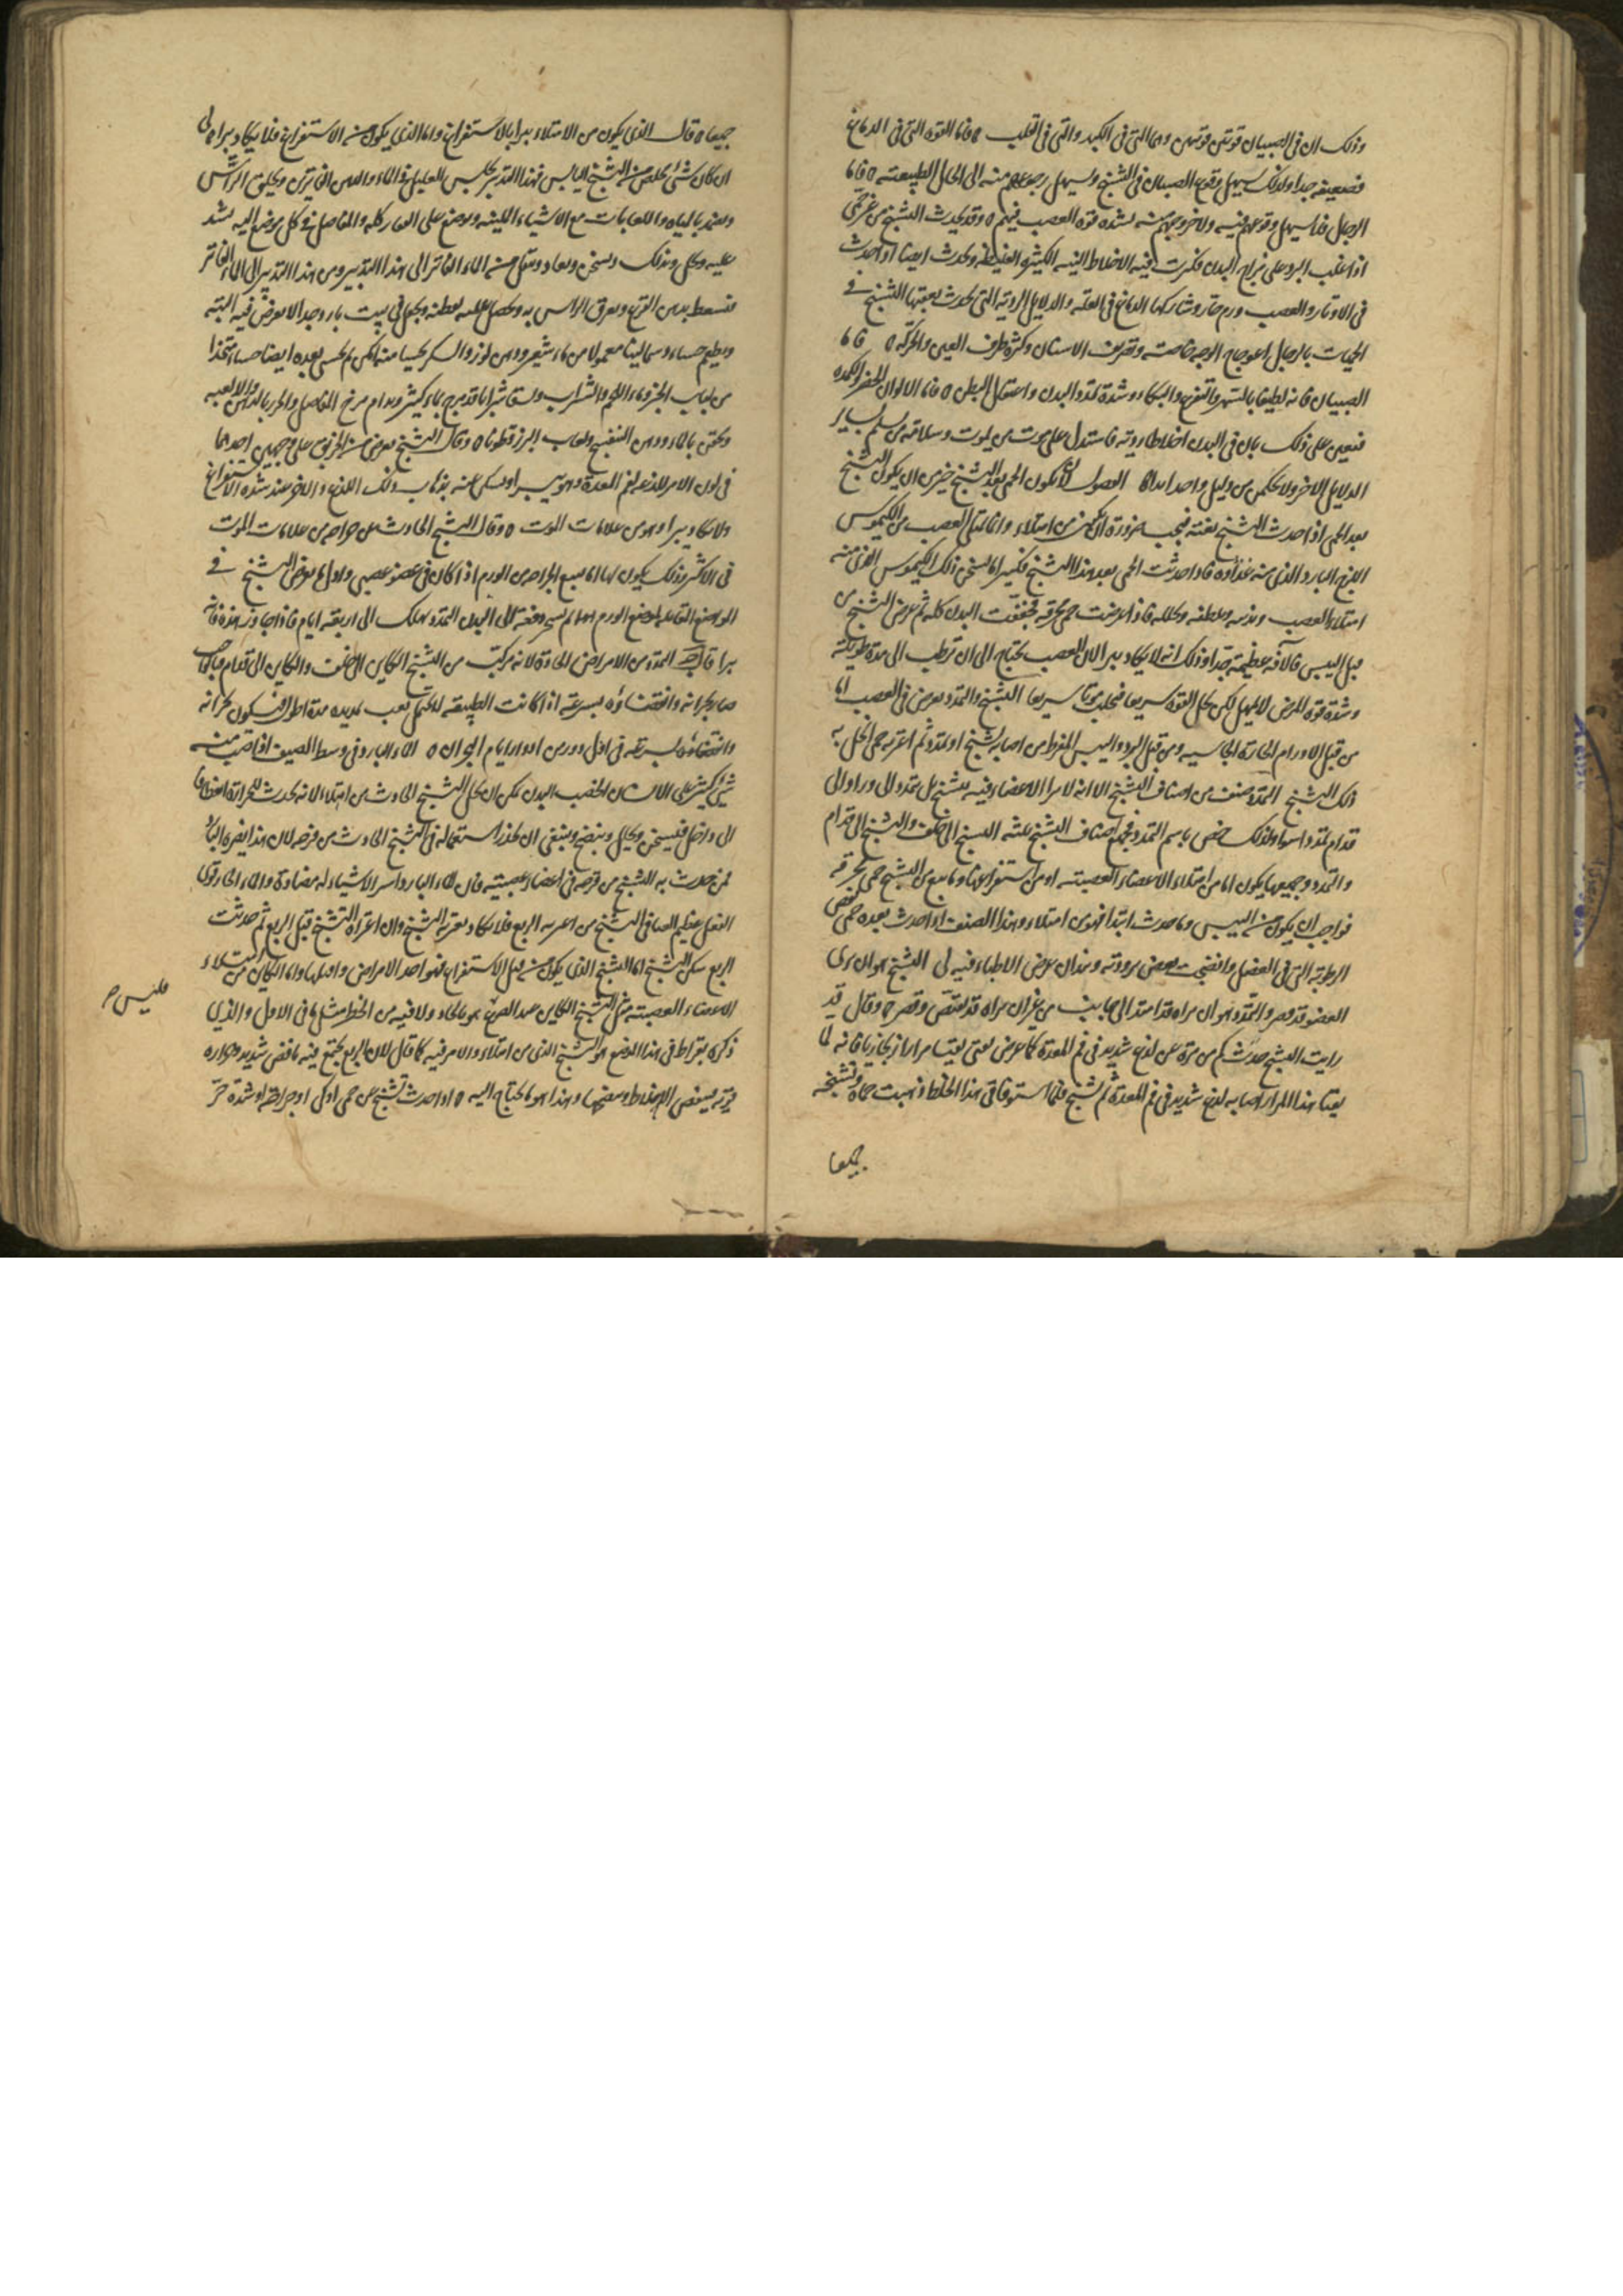 وذلك ان في الصبيان قوتين قويتين وهما التي في الكبد والتي في القلب ٥ فاما القوة التي في الدماغ
فضعيفة جدا ولذلك يسهل وقوع الصبيان في التشنج ويسهل رجوعهم منه الى الحال الطبيعية ٥ فاما
الرجال فلا يسهل وقوعهم فيه ولا خروجهم منه لشدة قوة العصب فيهم ٥ وقد يحدث التشنج من غير حمى
اذا غلب البرد على مزاج البدن فكثرت فيه الاخلاط النية الكثيرة الغليظة ويحدث ايضا اذا حدث
في الاوتار والعصب ورم حار وشاركها الدماغ في العلة والدلايل الردية التي يحدث بعقبها التشنج في
الحميات بالرجال اعوجاج الوجه خاصة وتصريف الاسنان وكثرة طرف العين والحركة ٥ فاما
الصبيان فانه يلحقهم السهر والتفزع والبكاء وشدة تمدد البدن واعتقال البطن ٥ فاما الالوان الخضر الكمدة
فتعين على ذلك بان في البدن اخلاطا ردية فاستدل على موت من يموت وسلامة من يسلم بساير
الدلايل الاخر ولا تحكمن من دليل واحد ابدا الفصول لان تكون الحمى بعد التشنج خير من ان يكون التشنج
بعد الحمى اذا حدث التشنج بغتة فيجب ضرورة ان يكون من امتلاء وانما تمتلي العصب من الكيموس
اللزج البارد الذي منه غذاؤه فاذا حدثت الحمى بعد هذا التشنج فكثيرا ما تسخن ذلك الكيموس الذي منه
امتلاء العصب وتذيبه وتلطفه وتحلله فاذا عرضت حمى محرقة فجففت البدن كله ثم عرض التشنج من
قبل اليبس فالآفة عظيمة جدا وذلك انه لا يكاد يبرا لان العصب يحتاج الى ان يرطب الى مدة طويلة
وشدة قوة المرض لا يمهل لكن يحل القوة سريعا فيجلب موتا سريعا التشنج والتمدد يعرض في العصب اما
من قبل الاورام الحارة الجاسية ومن قبل البرد واليبس المفرط من اصابه تشنج او تمدد ثم اعترته حمى انحل به
ذلك التشنج التمدد صنف من اصناف التشنج الا انه لا مرا الاعضاء فيه تتشنج بل تتمدد الى وراء والى
قدام تمددا سواء ولذلك خص باسم التمدد فجميع اصناف التشنج ثلثة التشنج الى خلف والتشنج الى قدام
والتمدد وجميعها يكون اما من امتلاء الاعضاء العصبية او من استفراغها وما تبع من التشنج حمى محرقة
فواجب ان يكون من اليبس وما حدث ابتدا فهو من امتلاء وهذا الصنف اذا حدث بعده حمى نفض
الرطوبة التي في الفضل وانضجت بعض برودته وهذان غرض الاطباء فيه لي التشنج هو ان ترى
العضو قد قصر والتمدد هو ان تراه قد امتد الى جانبين من غير ان تراه قد تقلص وقصر ح وقال قد
رايت التشنج حدث كم من مرة عن لذع شديد في فم المعدة كما عرض لفتى تقيا مرارا زنجاريا فانه لما
تقيا هذا المرار اصابه لذع شديد في فم المعدة ثم تشنج فلما استوفا قي هذا الخلط ذهبت حماه وتشنجه
جميعا
جميعا ٥ قال الذي يكون من الامتلاء يبرا بالاستفراغ واما الذي يكون من الاستفراغ فلا يكاد يبرا ٥ لي
ان كان شيء يخلص من التشنج اليابس فهذا التدبير يجلس العليل في الماء والدهن الفاترين ويحلق الراس
ويضمد بالمياه واللعابات مع الاشياء اللينة ويوضع على الفقار كله والمفاصل في كل موضع اليه يشد
عليه وكل وذلك ويسخن ويعاد وينقل من الماء الفاتر الى هذا التدبير ومن هذا التدبير الى الماء الفاتر
ويسعط بدهن القرع ويعرق الراس به ويجعل في بيت بارد جدا لا يعرض فيه البتة
ويطعم حساء دسما لينا معمولا من ماء شعير ودهن لوز والسكر يحسا منه ما امكن ثم يحسى بعده ايضا حساء متخذا
من لباب الخبز وماء اللحم والشراب ويسقا شرابا قد مزج بماء كثير ويدام مرخ المفاصل والخرز بالدهن والالعبه
ويحقن بالماء ودهن البنفسج ولعاب البزر قطونا ٥ وقال التشنج يعرض من الخربق على وجهين احدهما
في اول الامر للذعه لفم المعدة وهو يبرا ويسكن عنه بذهاب ذلك اللذع والاخر عند شدة الاستفراغ
ولا يكاد يبرا وهو من علامات الموت ٥ وقال التشنج الحادث من جراحة من علامات الموت
في الاكثر وذلك يكون لما يتبع الجراحة من الورم اذا كان في عضو عصبي واول ما يعرض التشنج في
المواضع القابلة لموضع الورم ثم دفعة الى البدن التمدد يهلك الى اربعة ايام فاذا جاوز هذه فانه
يبرا قال ج التمدد من الامراض الحادة لانه مركب من التشنج الكاين الى خلف والكاين الى قدام فبالواجب
صار بحرانه وانقضاؤه بسرعة اذا كانت الطبيعة لا تحتمل تعب تمديده مدة اطول فيكون بحرانه
وانقضاؤه بسرعة في اول دور من ادوار ايام البحران ٥ الماء البارد في وسط الصيف اذا صب منه
شيء كثير على الانسان الخصب البدن يمكن ان يحل التشنج الحادث من امتلاء لانه يحدث للحرارة انعطافا
الى داخل فيسخن ويحلل وينضج وينبغي ان يحذر استعماله في التشنج الحادث من قرحة لان هذا يضره البارد
فمن حدث به التشنج من قرحة في اعضاء عصبية فان الماء البارد اشر الاشياء له مضادة والماء الحار قوي
الفعل عظيم المنافع في التشنج من اعترته الربع فلا يكاد يعتريه التشنج وان اعتراه التشنج قبل الربع ثم حدثت
الربع سكن التشنج اما التشنج الذي يكون من قبل الاستفراغ فهو احد الامراض واقتلها واما الكاين من امتلاء
الاعضاء العصبية مثل التشنج الكاين عند الصرع هو بالحاد ولا فيه من الخطر مثل ما في الاول والذي فليس ح
ذكره بقراط في هذا الموضع هو التشنج الذي من امتلاء والامر فيه كما قال لان الربع يجتمع فيه نافض شديد وحرارة
قوية فينفض الاخلاط وينضجها وهذا هو ما يحتاج اليه ٥ اذا حدث تشنج عن حمى او كي او جراحة او شدة حر